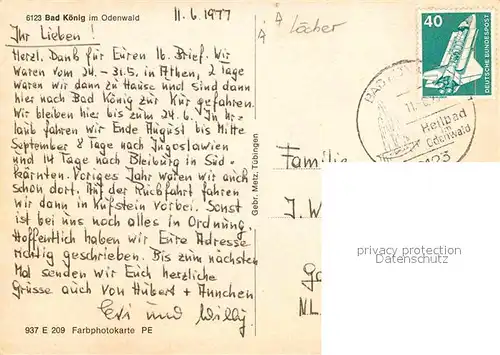 6123 Bad König im Odenwald
11.6.1977
Löcher
Ihr Lieben!
Herzl. Dank für Euren lb. Brief. Wir
waren vom 24. - 31.5. in Athen, 2 Tage
waren wir dann zu Hause und sind dann
hier nach Bad König zur Kur gefahren.
Wir bleiben hier bis zum 24.6. In Ur-
laub fahren wir Ende August bis Mitte
September 8 Tage nach Jugoslawien
und 14 Tage nach Bleiburg in Süd-
kärnten. Voriges Jahr waren wir auch
schon dort. Auf der Rückfahrt fahren
wir dann in Kufstein vorbei. Sonst
ist bei uns noch alles in Ordnung.
Hoffentlich haben wir Eure Adresse
richtig geschrieben. Bis zum nächsten
Mal senden wir Euch herzliche
Grüsse auch von Hubert + Annchen
Evi und Willy
937 E 209 Farbphotokarte PE
Gebr. Metz, Tübingen
40
DEUTSCHE BUNDESPOST
BAD KÖNIG
11.6.
Heilbad
im
Odenwald
6123
Familie
J. W
NL.
privacy protection
Datenschutz